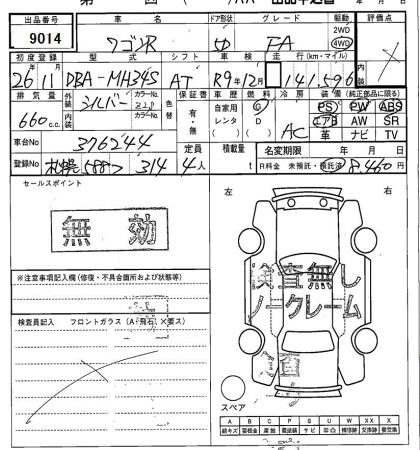 出品番号 車名 ドア形状 グレード 駆動 評価点
9014 ワゴンR 5D FA 2WD 4WD
初度登録 型式 シフト 車検 走行(km・マイル) 内装
26年11月 DBA-MH34S AT R9年12月 141,596
排気量 外装 カラーNo. 色替 保証書 車歴 燃料 冷房 装備(純正部品に限る)
660c.c. シルバー Z2S 有・無 自家用 レンタ G D AC PS PW ABS
内装 カラーNo. エアB AW SR
革 ナビ TV
車台No 376244 定員 積載量 名変期限 年 月 日
登録No 札幌 588 314 4人 t R料金 未預託・預託済 8,460円
セールスポイント
無効
左 右
検査無し
ノークレーム
※注意事項記入欄(修復・不具合箇所および状態等)
検査員記入 フロントガラス(A・飛石・X要ス)
スペア
A B C P S U W X XX
線キズ 腐蝕 サビ 凹凸 補修跡 要交換